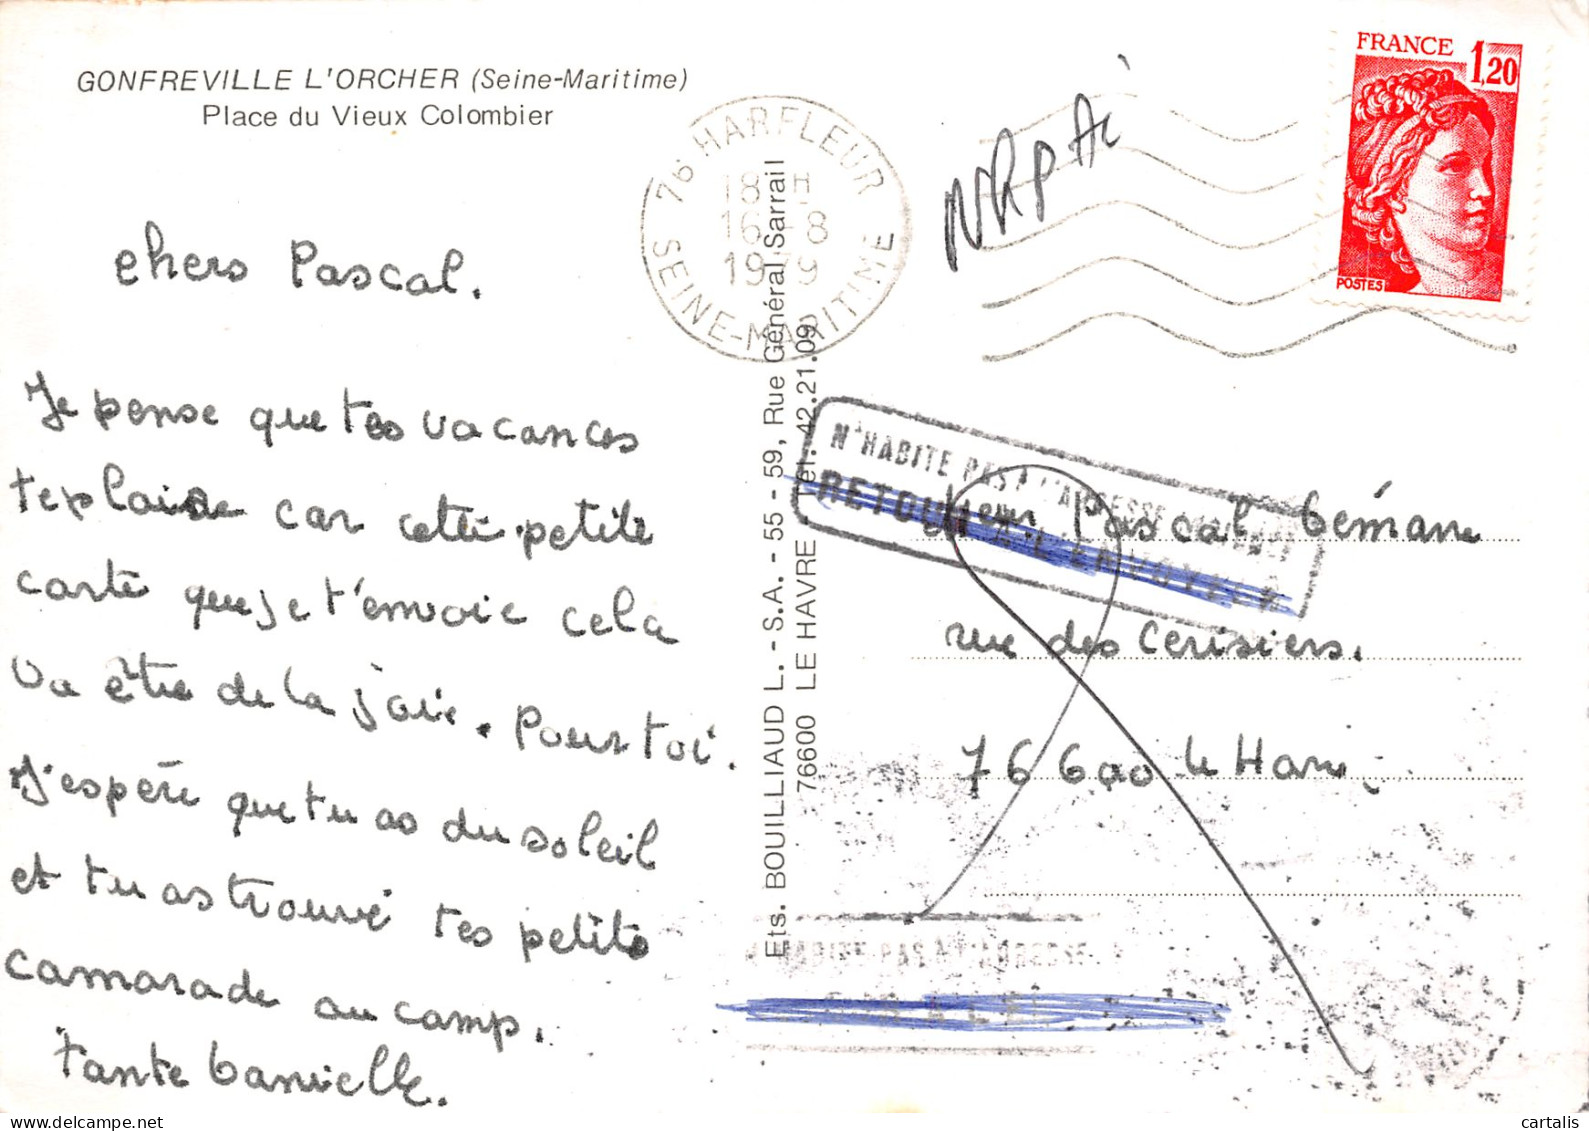 GONFREVILLE L'ORCHER (Seine-Maritime)
Place du Vieux Colombier
chers Pascal.
Je pense que tes vacances
te plaise car cette petite
carte que je t'envoie cela
va être de la joie. Pour toi.
J'espère que tu as du soleil
et tu as trouvé tes petits
camarade au camp.
tante Danielle.
76 HARFLEUR
18 H
16 - 8
1979
SEINE-MARITIME
Ets. BOUILLIAUD L. - S.A. - 55 - 59, Rue Général Sarrail
76600 LE HAVRE - Tél. 42.21.09
NRPAi
FRANCE 1,20
POSTES
N'HABITE PAS A L'ADRESSE
RETOUR A L'ENVOYEUR
Pascal
rue des Cerisiers.
76600 le Havre
N'HABITE PAS A L'ADRESSE
cartalis
www.delcampe.net